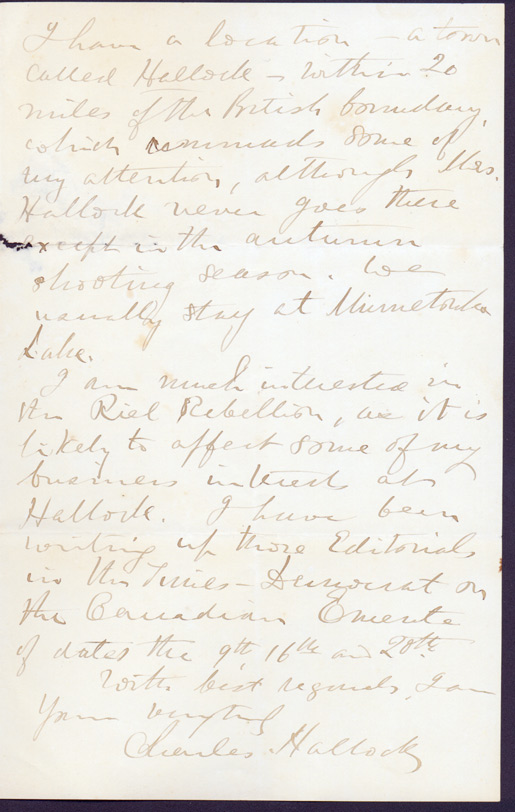 I have a location – a town
called Hallock – within 20
miles of the British boundary,
which commands some of
my attention, although Mrs.
Hallock never goes there
except in the autumn
shooting season. We
usually stay at Minnetonka
Lake.
I am much interested in
the Riel Rebellion, as it is
likely to affect some of my
business interests at
Hallock. I have been
writing up those Editorials
in the Times–Democrat on
the Canadian Emeute
of dates the 9th, 16th and 20th.
With best regards, I am
Yours very truly
Charles Hallock